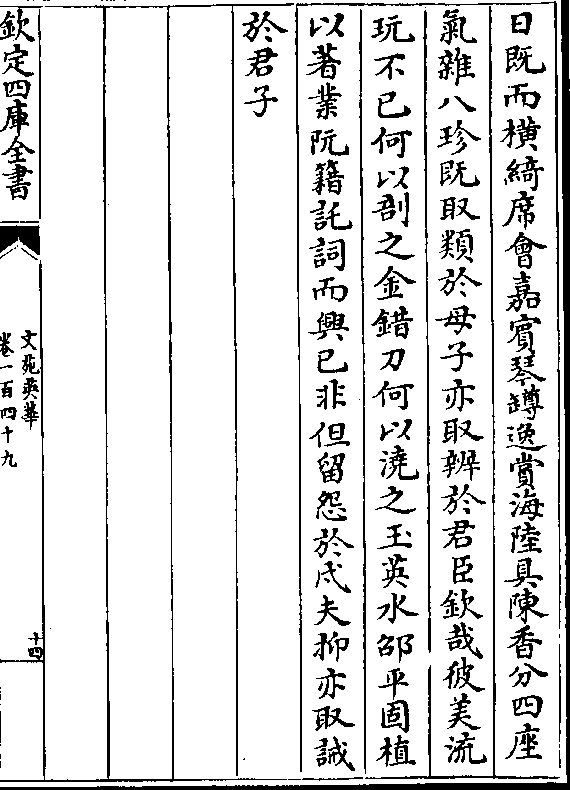 日既而橫綺席會嘉賓琴罇逸賞海陸具陳香分四座
氣雜八珍既取類於母子亦取辨於君臣欽哉彼美流
玩不已何以剖之金錯刀何以澆之玉英水邵平固植
以著業阮籍託詞而興已非但留怨於戍夫抑亦取誡
於君子
欽定四庫全書
文苑英華
卷一百四十九
十四